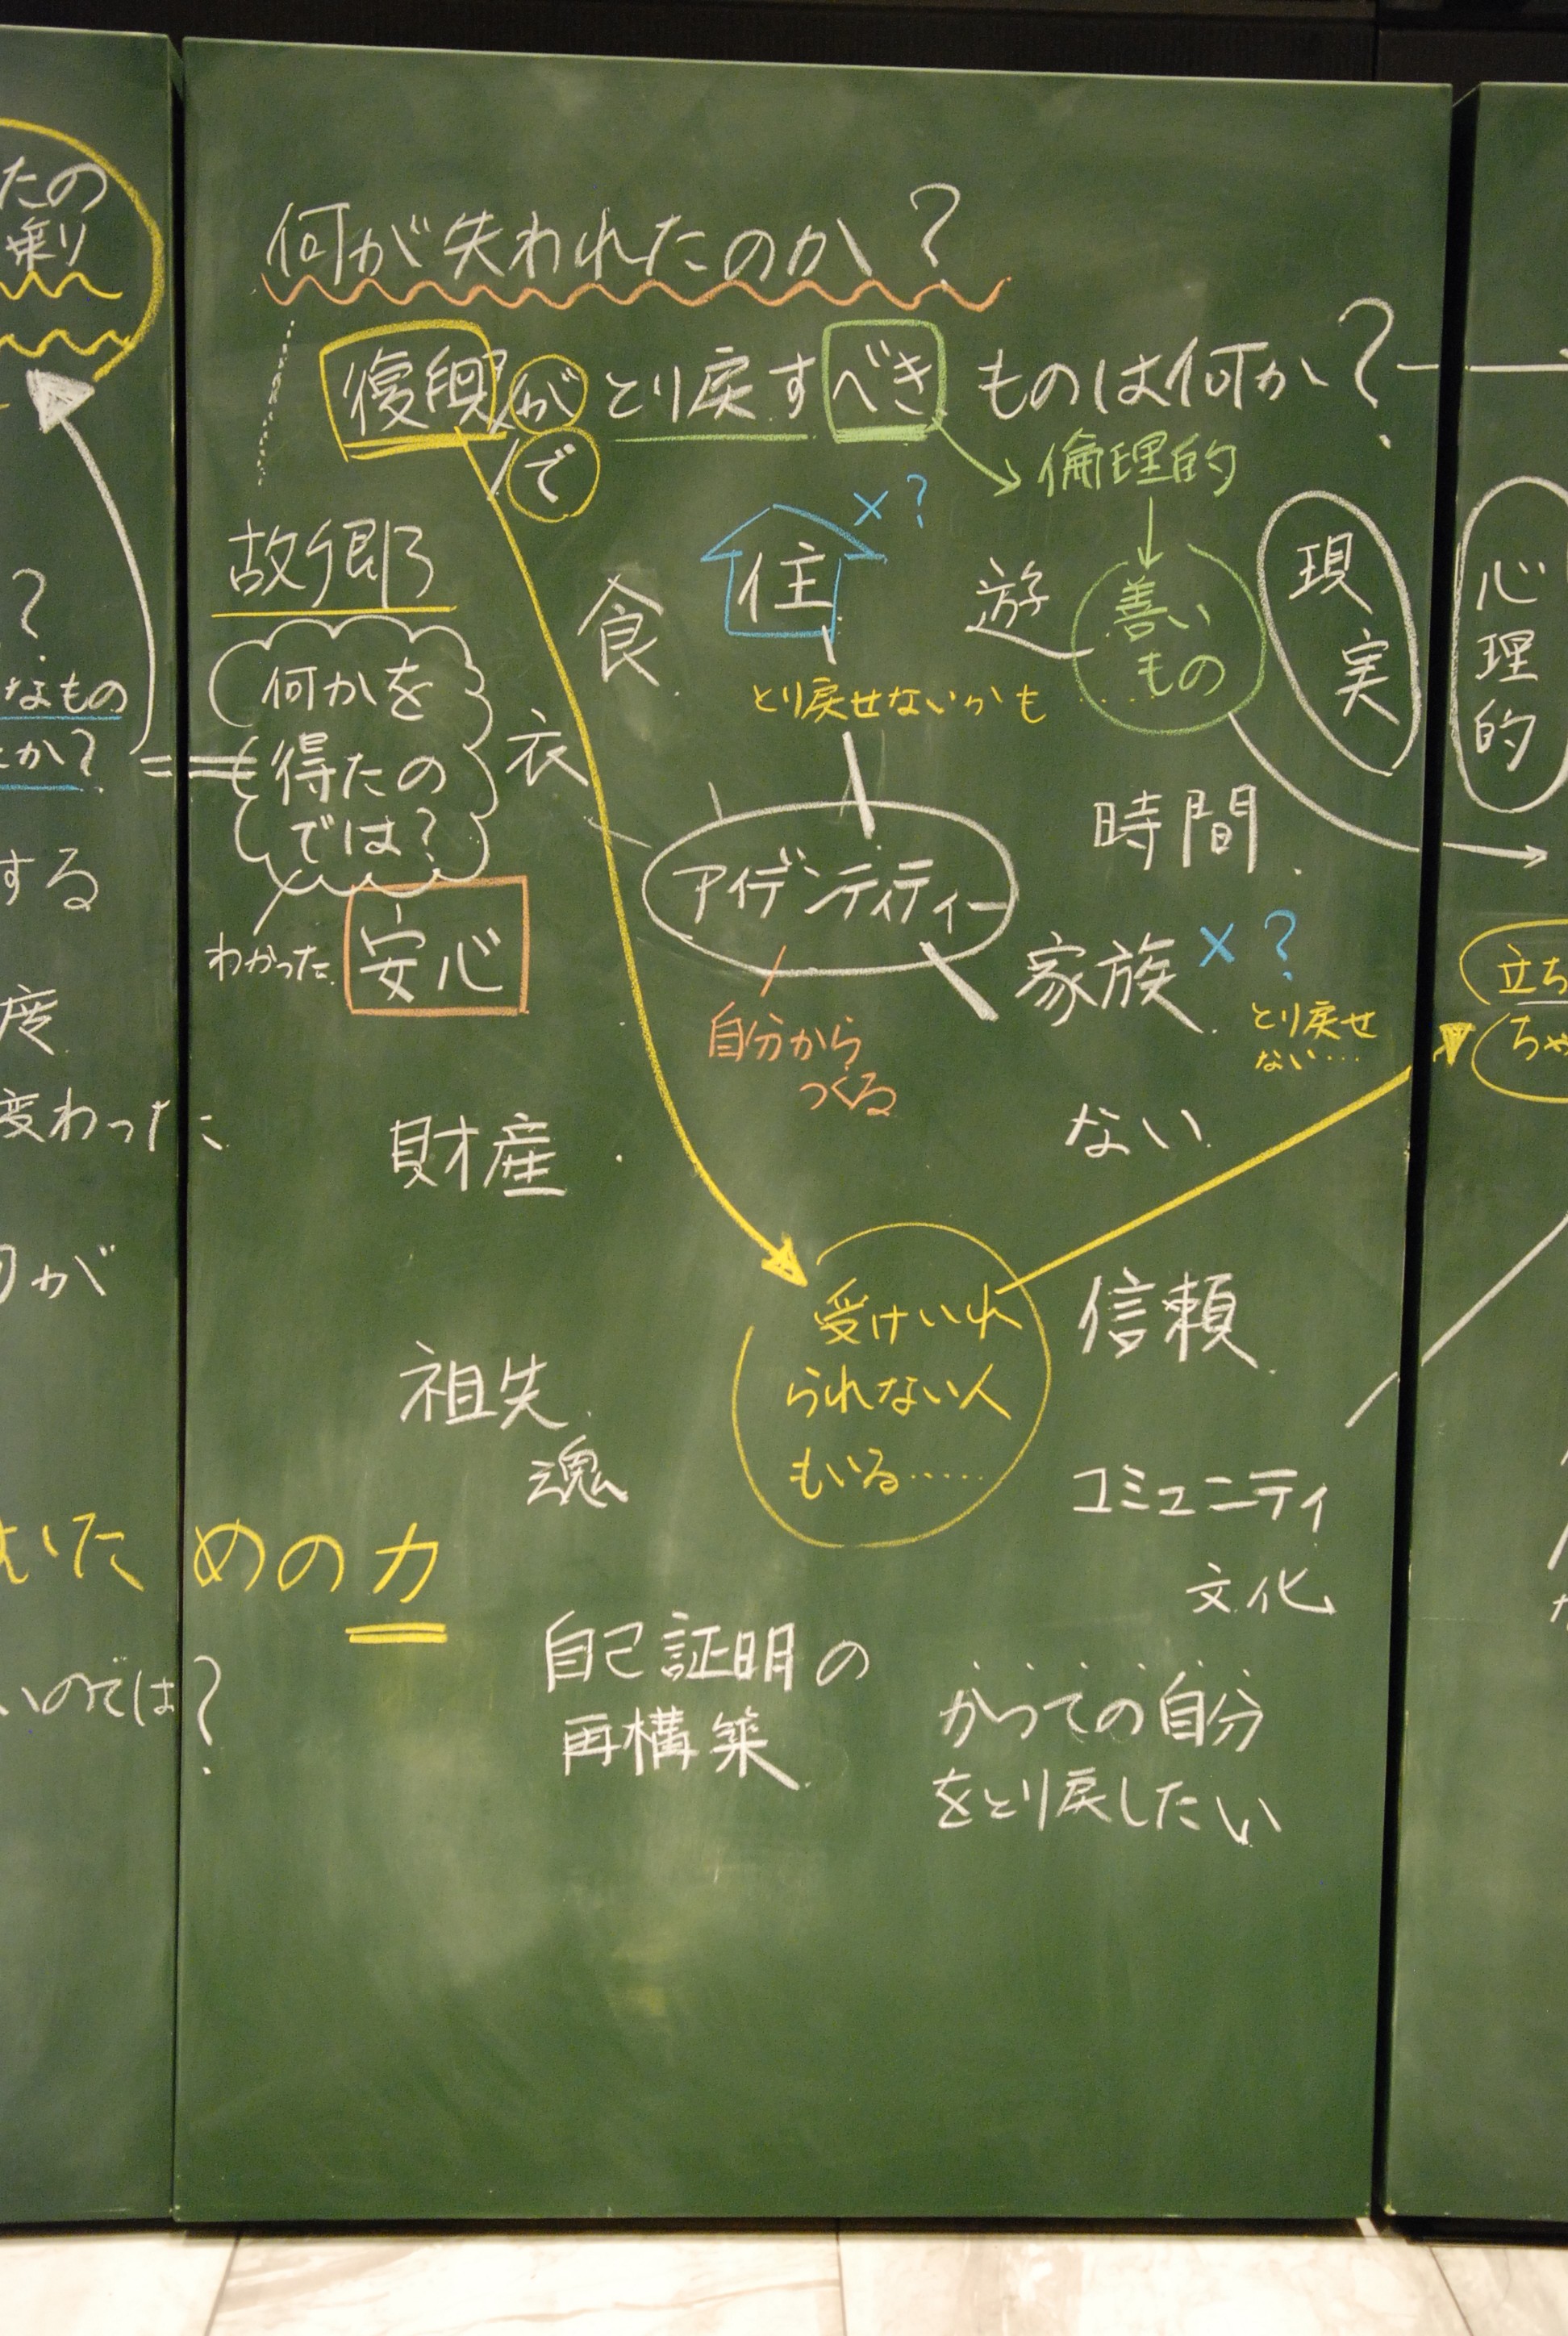 何が失われたのか?
復興が とり戻すべき ものは何か?
で
倫理的
善い
もの
現実
心理的
故郷
食
住
×?
遊
とり戻せないかも
何かを
得たの
では?
衣
わかった
安心
アイデンティティー
自分から
つくる
時間
家族
×?
とり戻せ
ない…
ない
財産
受けいれ
られない人
もいる……
信頼
祖先
魂
コミュニティ
文化
自己証明の
再構築
かつての自分
をとり戻したい
たの
乗り
?
なもの
か?
する
度
変わった
が
いた めの力
いのでは?
立ち
ちゃ